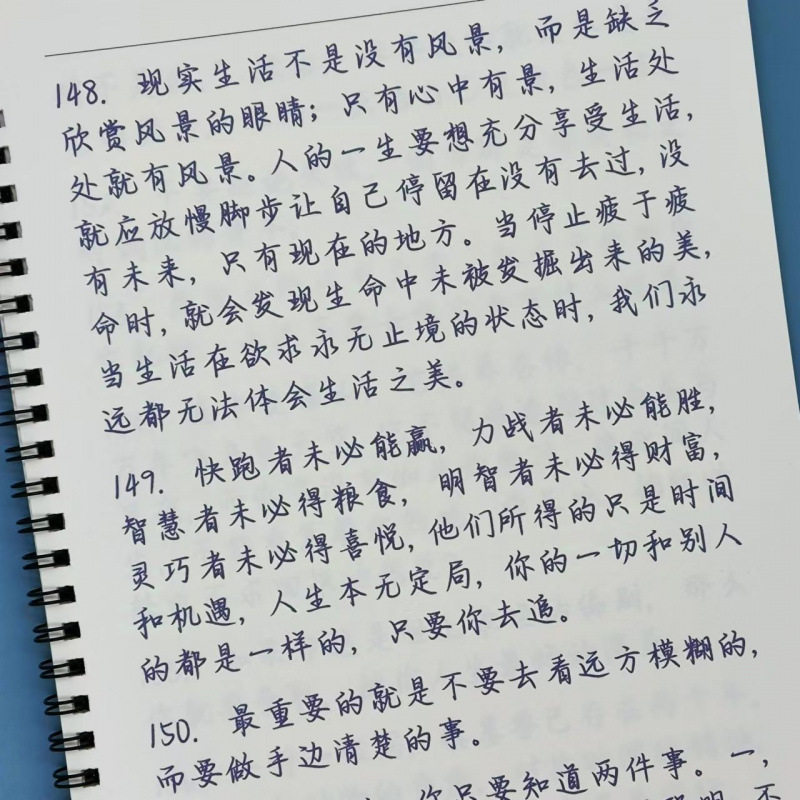 148. 现实生活不是没有风景，而是缺乏
欣赏风景的眼睛；只有心中有景，生活处
处就有风景。人的一生要想充分享受生活，
就应放慢脚步让自己停留在没有去过，没
有未来，只有现在的地方。当停止疲于疲
命时，就会发现生命中未被发掘出来的美，
当生活在欲求永无止境的状态时，我们永
远都无法体会生活之美。
149. 快跑者未必能赢，力战者未必能胜，
智慧者未必得粮食，明智者未必得财富，
灵巧者未必得喜悦，他们所得的只是时间
和机遇，人生本无定局，你的一切和别人
的都是一样的，只要你去追。
150. 最重要的就是不要去看远方模糊的，
而要做手边清楚的事。
你只要知道两件事。一，